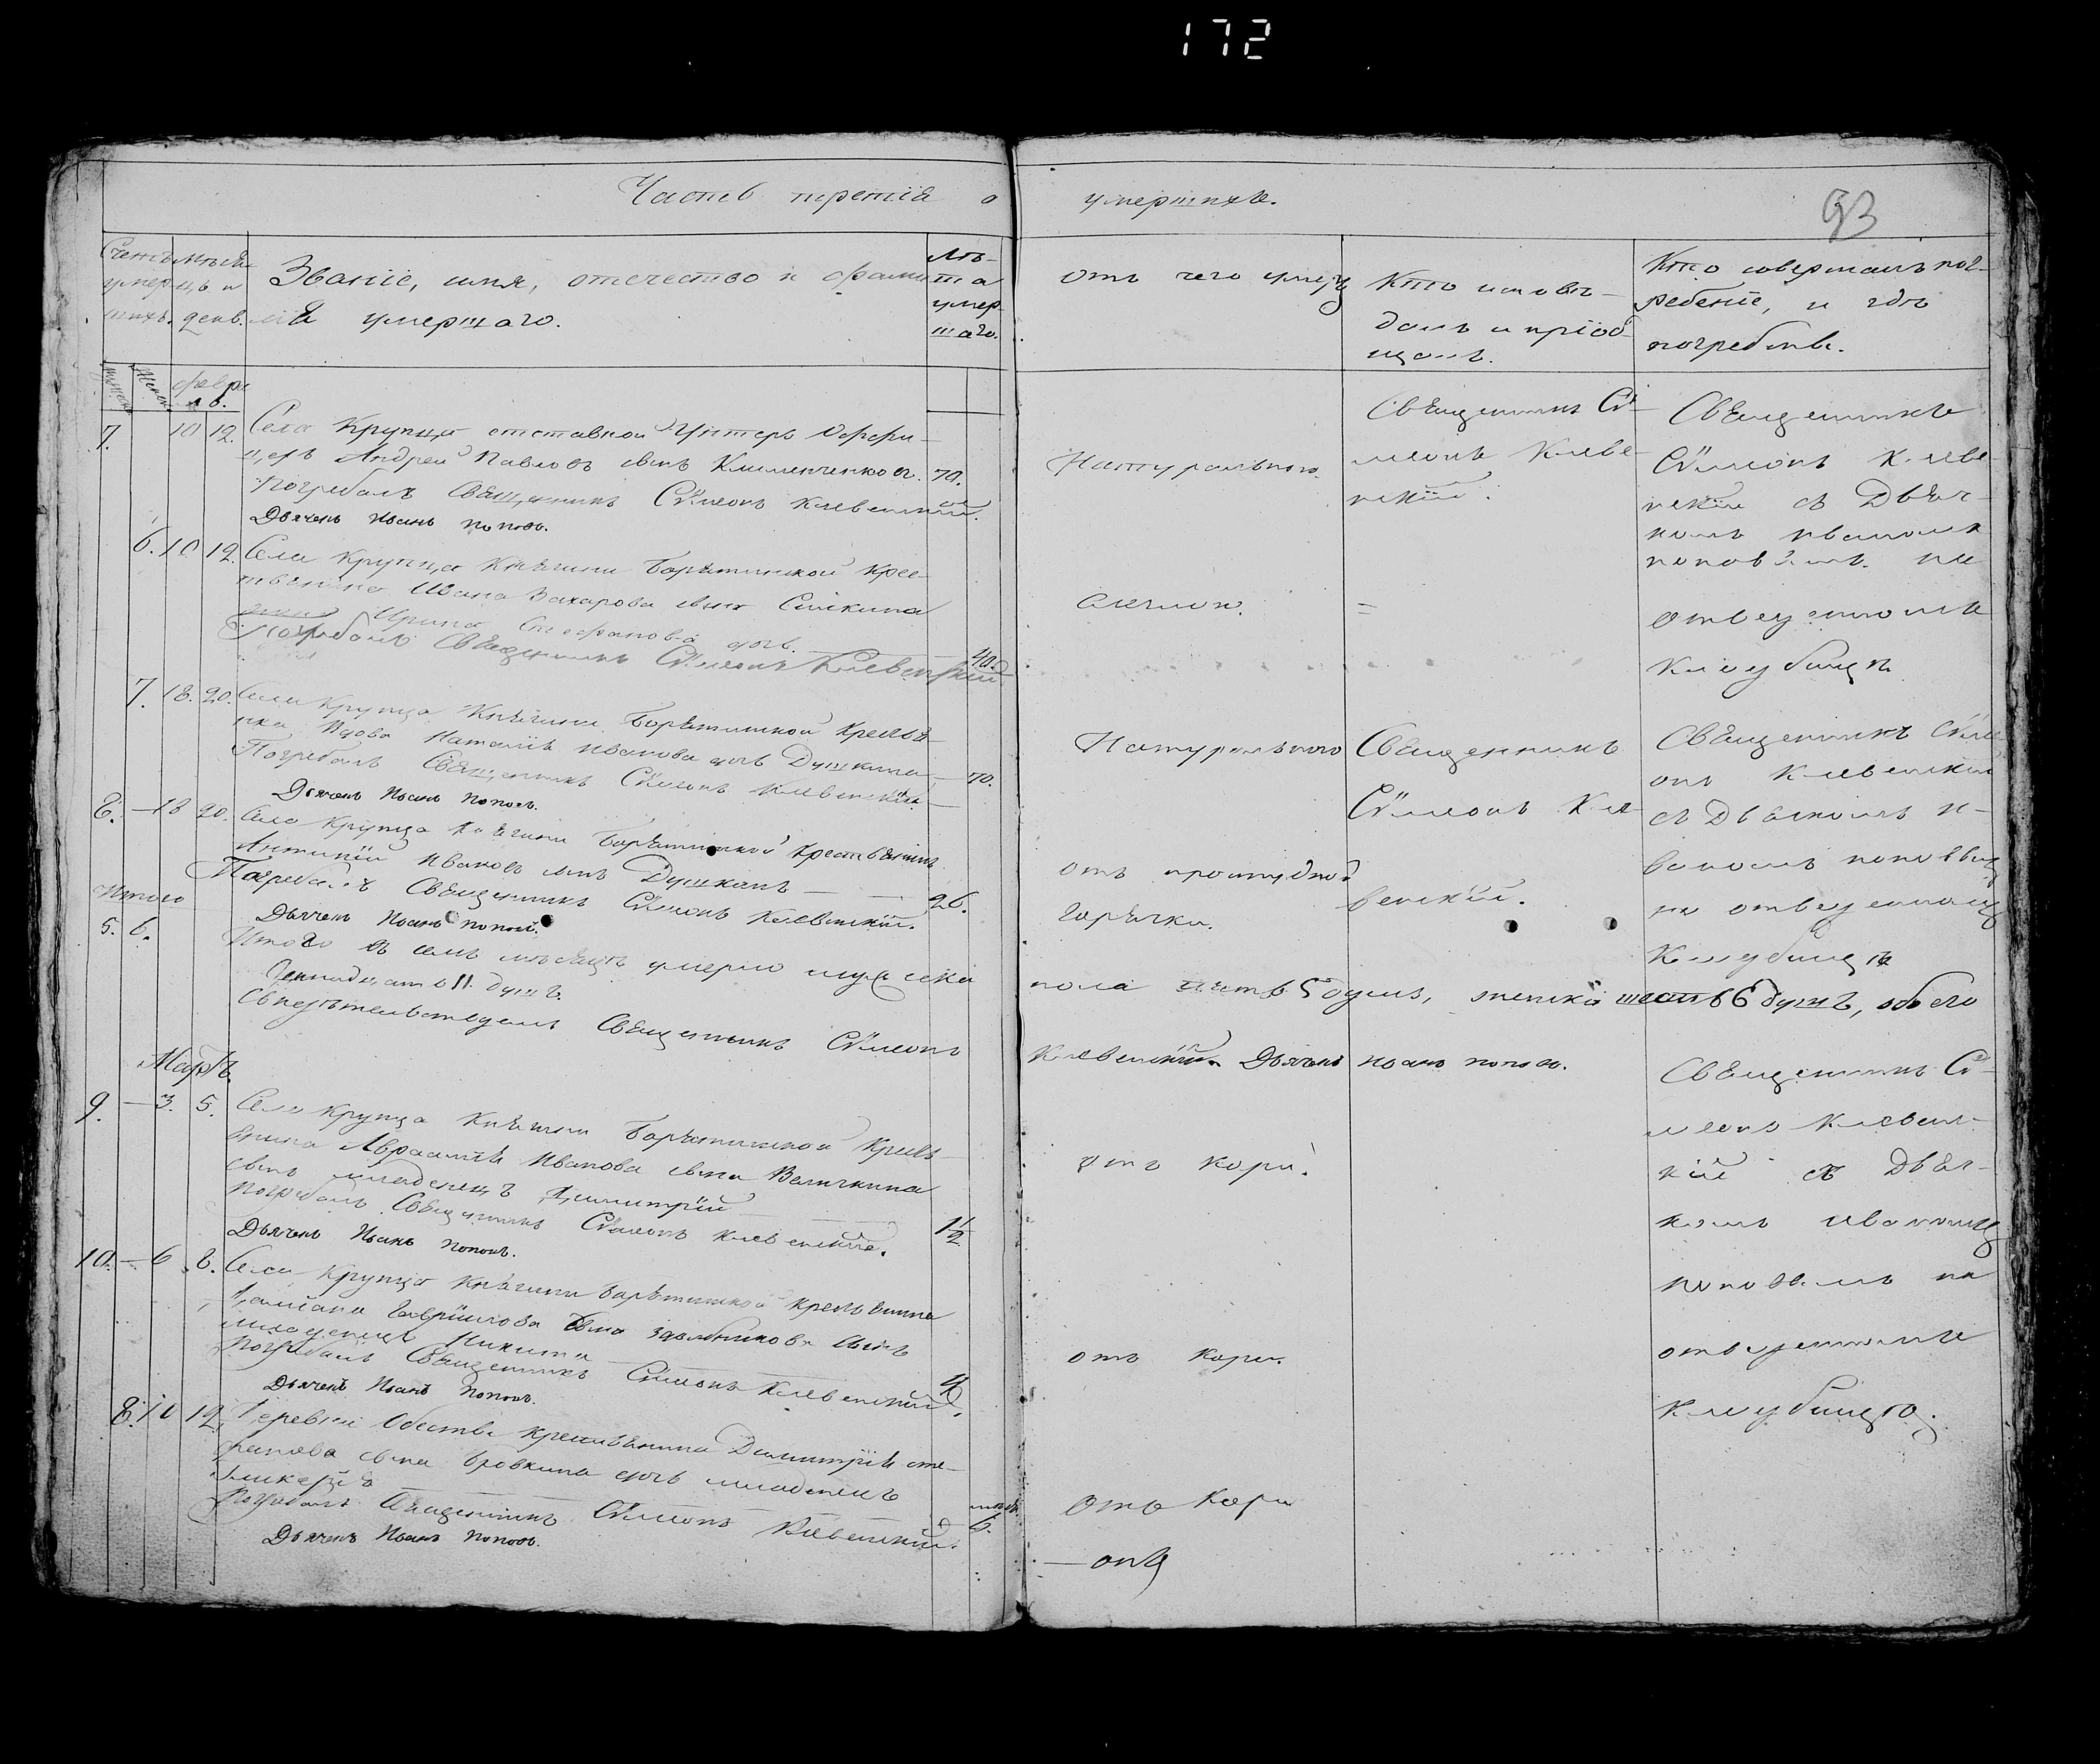 172
Часть третія о умершихъ.
93
Счетъ умершихъ.
Мѣсяцъ и день.
Званіе, имя, отечество и фамилія умершаго.
Лѣта умершаго.
Отъ чего умеръ
Кто исповѣдалъ и пріобщалъ.
Кто совершалъ погребеніе, и гдѣ погребенъ.
февраль.
7. 10 12. Села Крупца отставной Унтеръ Оффи-
церъ Андрей Павловъ сынъ 70.
Погребалъ Священникъ Сѷмеонъ Клевенскій.
Дьячекъ Иванъ Поповъ.
Натуральною.
Священникъ Сѷ-
меонъ Клеве-
нскій.
Священникъ
Сѷмеонъ Клеве-
нскій съ Дьяч-
комъ Иваномъ
Поповымъ на
отведенномъ
кладбищѣ
6. 10 12. Села Крупца Княгини Борятинской Крес-
тьянина Ивана Захарова сына
жена Ирина Стефанова дочь. 40.
Погребалъ Священникъ Сѷмеонъ Клевенскій
=
7. 18. 20. Села Крупца Княгини Борятинской Крестья-
нка Вдова Наталія Иванова дочь Душкина 70.
Погребалъ Священникъ Сѷмеонъ Клевенскій
Дьячекъ Иванъ Поповъ.
Натуральною
Священникъ
Сѷмеонъ Кле-
венскій.
Священникъ Сѷме-
онъ Клевенскій
съ Дьячкомъ И-
ваномъ Поповымъ
на отведенномъ
Кладбищѣ
8. 18 20. Села Крупца Княгини Борятинской Крестьянинъ
Ивановъ сынъ Душкинъ 26.
Погребалъ Священникъ Сѷмеонъ Клевенскій.
Дьячекъ Иванъ Поповъ.
отъ простудной
горячки.
Итого
5. 6.
Итого въ семъ мѣсяцѣ умерло мужеска пола пять 5 душъ, женска шесть 6 душъ, обоего
11. душъ.
Свидѣтельствуемъ Священникъ Сѷмеонъ Клевенскій. Дьячекъ Иванъ Поповъ.
Мартъ.
9. 3. 5. Села Крупца Княгини Борятинской Крестья-
нина Авраамія Иванова сына Величкина
сынъ младенецъ Димитрій 1½
Погребалъ Священникъ Сѷмеонъ Клевенскій.
Дьячекъ Иванъ Поповъ.
отъ кори.
Священникъ Сѷ-
меонъ Клевенс-
кій съ Дьяч-
комъ Иваномъ
Поповымъ на
отведенномъ
Кладбищѣ.
10. 6 8. Села Крупца Княгини Борятинской Крестьянина
Даміана Гавріилова сына сынъ
младенецъ Никита
Погребалъ Священникъ Сѷмеонъ Клевенскій.
Дьячекъ Иванъ Поповъ.
отъ кори.
8. 10 12. Деревни Обеста крестьянина Димитрія Сте-
фанова сына Бровкина дочь младенецъ
Гликерія 6.
Погребалъ Священникъ Сѷмеонъ Клевенскій.
Дьячекъ Иванъ Поповъ.
Отъ Кори